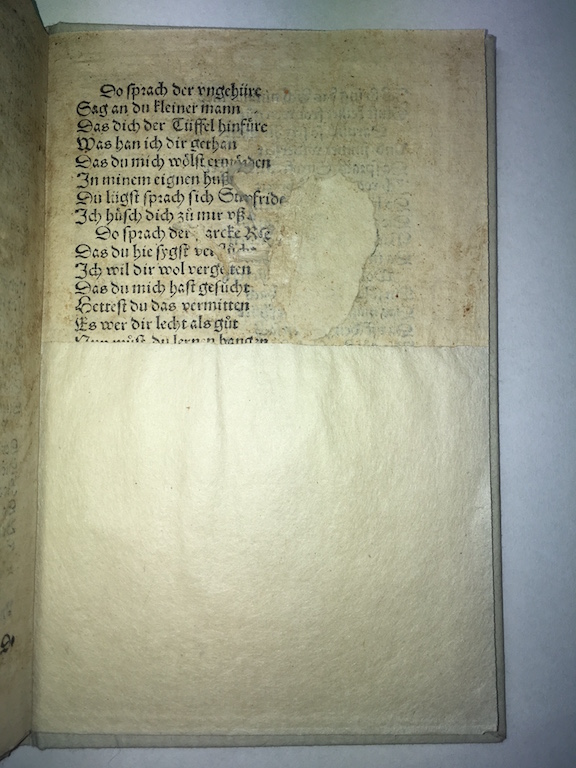 Do sprach der vngehüre
Sag an du kleiner mann
Das dich der Tüffel hinfüre
Was han ich dir gethan
Das du mich wölst ermürden
In minem eignen huß
Du lügst sprach sich Seyfride
Ich hüsch dich zů mir vß
Do sprach der arcke
Das du hie sygst
Ich wil dir wol vergelten
Das du mich hast gesůcht
Hettest du das vermitten
Es wer dir lecht als gůt
Nun můst du lernen hangen